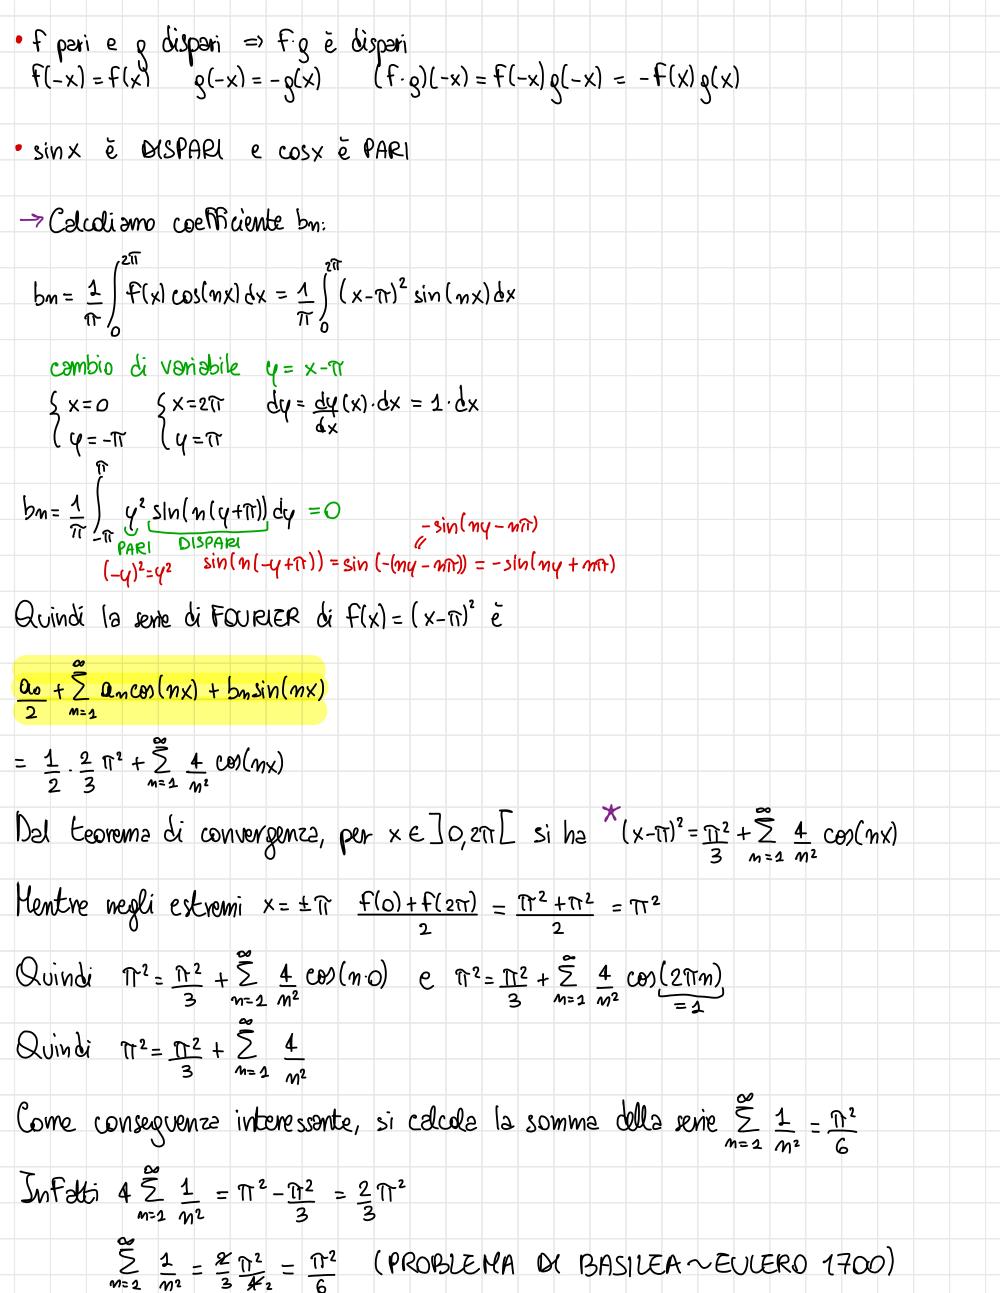 • f pari e g dispari ⇒ f·g è dispari
f(-x) = f(x) g(-x) = -g(x) (f·g)(-x) = f(-x)g(-x) = -f(x)g(x)
• sin x è DISPARI e cos x è PARI
→ Calcoliamo coefficiente bn:
bn = 1/π ∫_0^{2π} f(x) cos(nx) dx = 1/π ∫_0^{2π} (x-π)² sin(nx) dx
cambio di variabile y = x-π
{ x=0 { x=2π dy = dy/dx (x)·dx = 1·dx
{ y=-π { y=π
bn = 1/π ∫_{-π}^{π} y² sin(n(y+π)) dy = 0
-sin(ny-nπ)
PARI DISPARI
(-y)²=y² sin(n(-y+π)) = sin(-(ny-nπ)) = -sin(ny+nπ)
Quindi la serie di FOURIER di f(x) = (x-π)² è
a₀/2 + Σ_{n=1}^{∞} an cos(nx) + bn sin(nx)
= 1/2 · 2/3 π² + Σ_{n=1}^{∞} 4/n² cos(nx)
Dal teorema di convergenza, per x ∈ ]0,2π[ si ha * (x-π)² = π²/3 + Σ_{n=1}^{∞} 4/n² cos(nx)
Mentre negli estremi x = ±π (f(0)+f(2π))/2 = (π²+π²)/2 = π²
Quindi π² = π²/3 + Σ_{n=1}^{∞} 4/n² cos(n·0) e π² = π²/3 + Σ_{n=1}^{∞} 4/n² cos(2πn)
=1
Quindi π² = π²/3 + Σ_{n=1}^{∞} 4/n²
Come conseguenza interessante, si calcola la somma della serie Σ_{n=1}^{∞} 1/n² = π²/6
Infatti 4 Σ_{n=1}^{∞} 1/n² = π² - π²/3 = 2/3 π²
Σ_{n=1}^{∞} 1/n² = 2/3 π²/4 2 = π²/6 (PROBLEMA DI BASILEA ~ EULERO 1700)